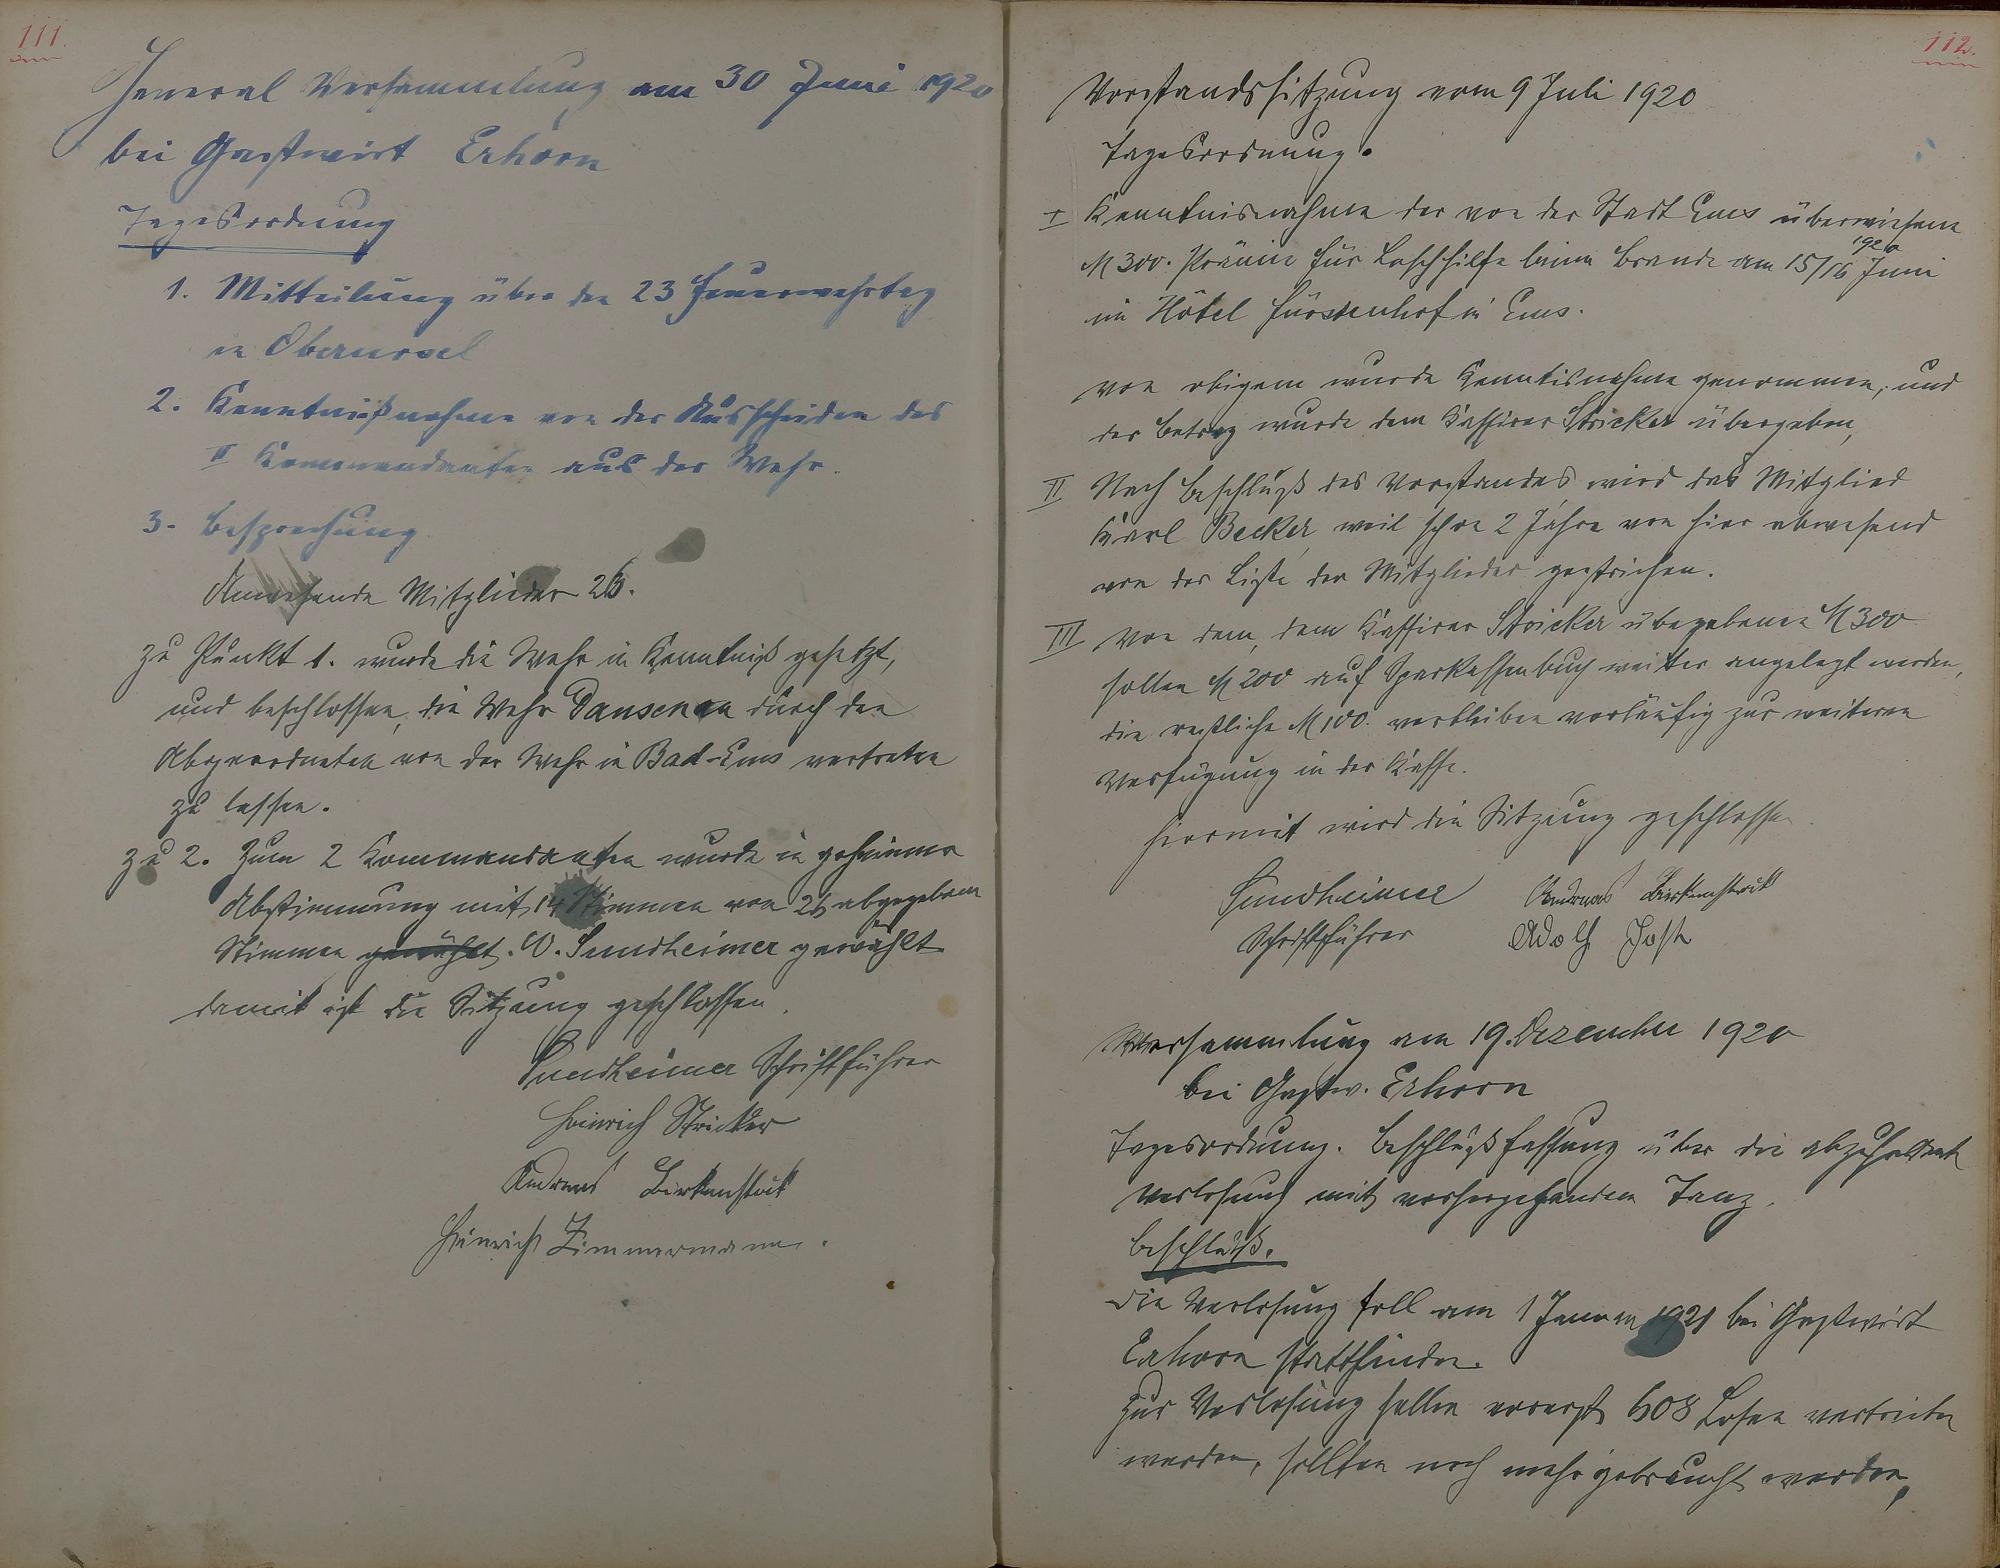 111.
General Versammlung am 30 Juni 1920
bei Gastwirt Erhorn
Tagesordnung
1. Mitteilung über den 23 Feuerwehrtag
in Oberursel
2. Kenntnißnahme von der Ausscheiden des
II Kommandanten aus der Wehr.
3. Besprechung
Anwesende Mitglieder 26.
zu Punkt 1. wurde die Wehr in Kenntniß gesetzt,
und beschlossen, die Wehr Dausenau durch den
Abgeordneten von der Wehr in Bad-Ems vertreten
zu lassen.
zu 2. Zum 2 Kommandanten wurde in geheimer
Abstimmung mit 14 Stimmen von 26 abgegebenen
Stimmen gewählt. W. Sundheimer gewählt
damit ist die Sitzung geschlossen.
Sundheimer Schriftführer
Heinrich Stricker
Andreas Birkenstock
Heinrich Zimmermann.
112.
Vorstandssitzung vom 9 Juli 1920
Tagesordnung.
I Kenntnisnahme der von der Stadt Ems überwiesene
M 300. Prämie für Loschhilfe beim Brande am 15/16 Juni 1920
im Hôtel Fürstenhof in Ems.
von obigem wurde Kenntisnahme genommen, und
der Betrag wurde dem Kassirer Stricker übergeben,
II Nach Beschluß des Vorstandes wird das Mitglied
Karl Becker, weil schon 2 Jahre von hier abwesend
von der Liste der Mitglieder gestrichen.
III Von dem, dem Kassirer Stricker übegebenen M 300
sollen M 200 auf Sparkassenbuch weiter angelegt werden,
die restliche M 100. verbleiben vorläufig zur weiteren
Verfügung in der Kasse.
hiermit wird die Sitzung geschlossen.
Sundheimer Andreas Birkenstock
Schriftführer Adolf Jost
Versammlung am 19. Dezember 1920
bei Gastw. Erhorn
Tagesordnung. Beschlußfassung über die abzuhaltende
Verlosung mit vorhergehendem Tanz.
Beschluß.
Die Verlosung soll am 1 Januar 1921 bei Gastwirt
Erhorn stattfinden.
Zur Verlosung sollen vorerst 608 Losen vertrieben
werden, sollten noch mehr gebraucht werden,